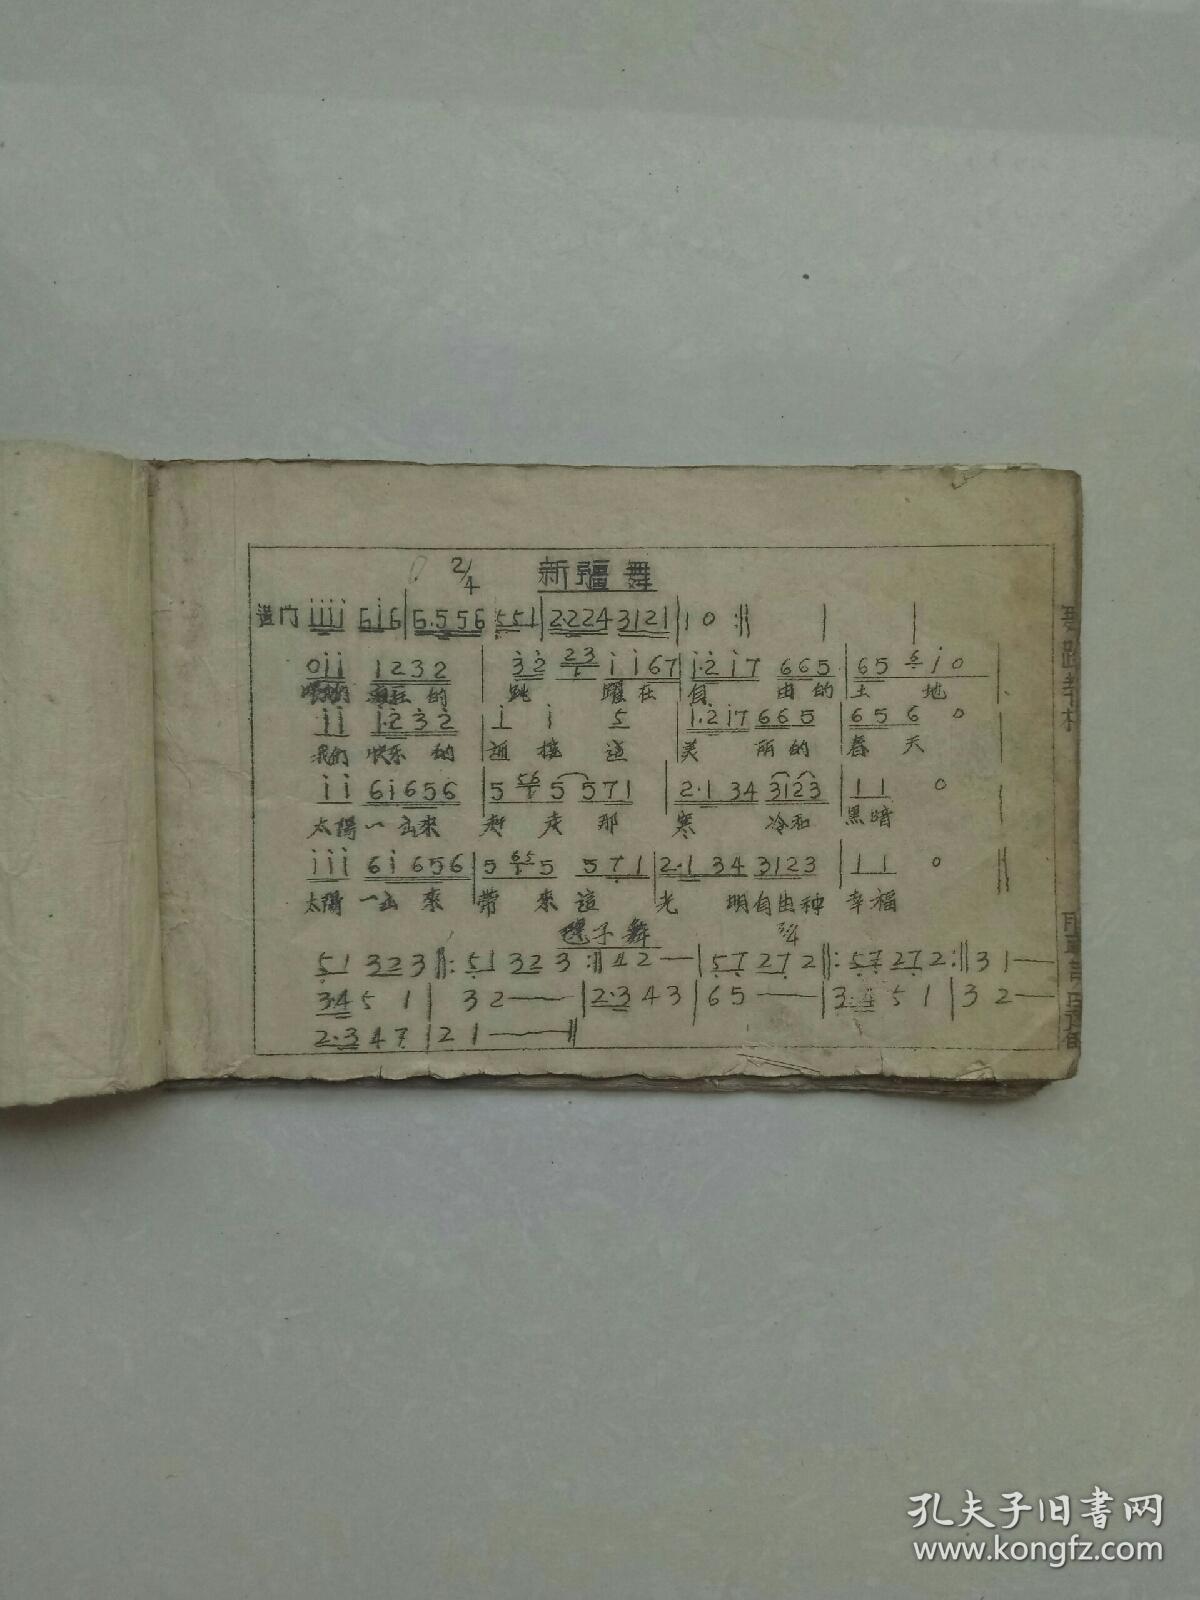 2/4 新疆舞
過门 i i i i 6 i 6 | 6.5 5 6 5 5 1 | 2.2 2 4 3 1 2 1 | 1 0 :‖ | |
0 i i 1 2 3 2 | 3 2 i i 6 7 | i.2 i 7 6 6 5 | 6 5 i 0 |
的 跳 躍在 自 由的 土 地
i i 1.2 3 2 | i i 5 | 1.2 i 7 6 6 5 | 6 5 6 0 |
我们 快乐 的 迎 接 這 美 丽的 春 天
i i 6 i 6 5 6 | 5 56 5 5 7 1 | 2.1 3 4 3 1 2 3 | 1 1 0 |
太陽 一出來 赶 走 那 寒 冷和 黑暗
i i i 6 i 6 5 6 | 5 65 5 5 7 1 | 2.1 3 4 3 1 2 3 | 1 1 0 ‖
太陽 一出 來 帶 來 這 光 明自由和 幸福
子舞 3/4
5 1 3 2 3 ‖: 5 1 3 2 3 :‖ 4 2 — | 5 7 2 7 2 ‖: 5 7 2 7 2 :‖ 3 1 —
3.4 5 1 | 3 2 — | 2.3 4 3 | 6 5 — | 3.4 5 1 | 3 2 —
2.3 4 7 | 2 1 — ‖
孔夫子旧書网
www.kongfz.com